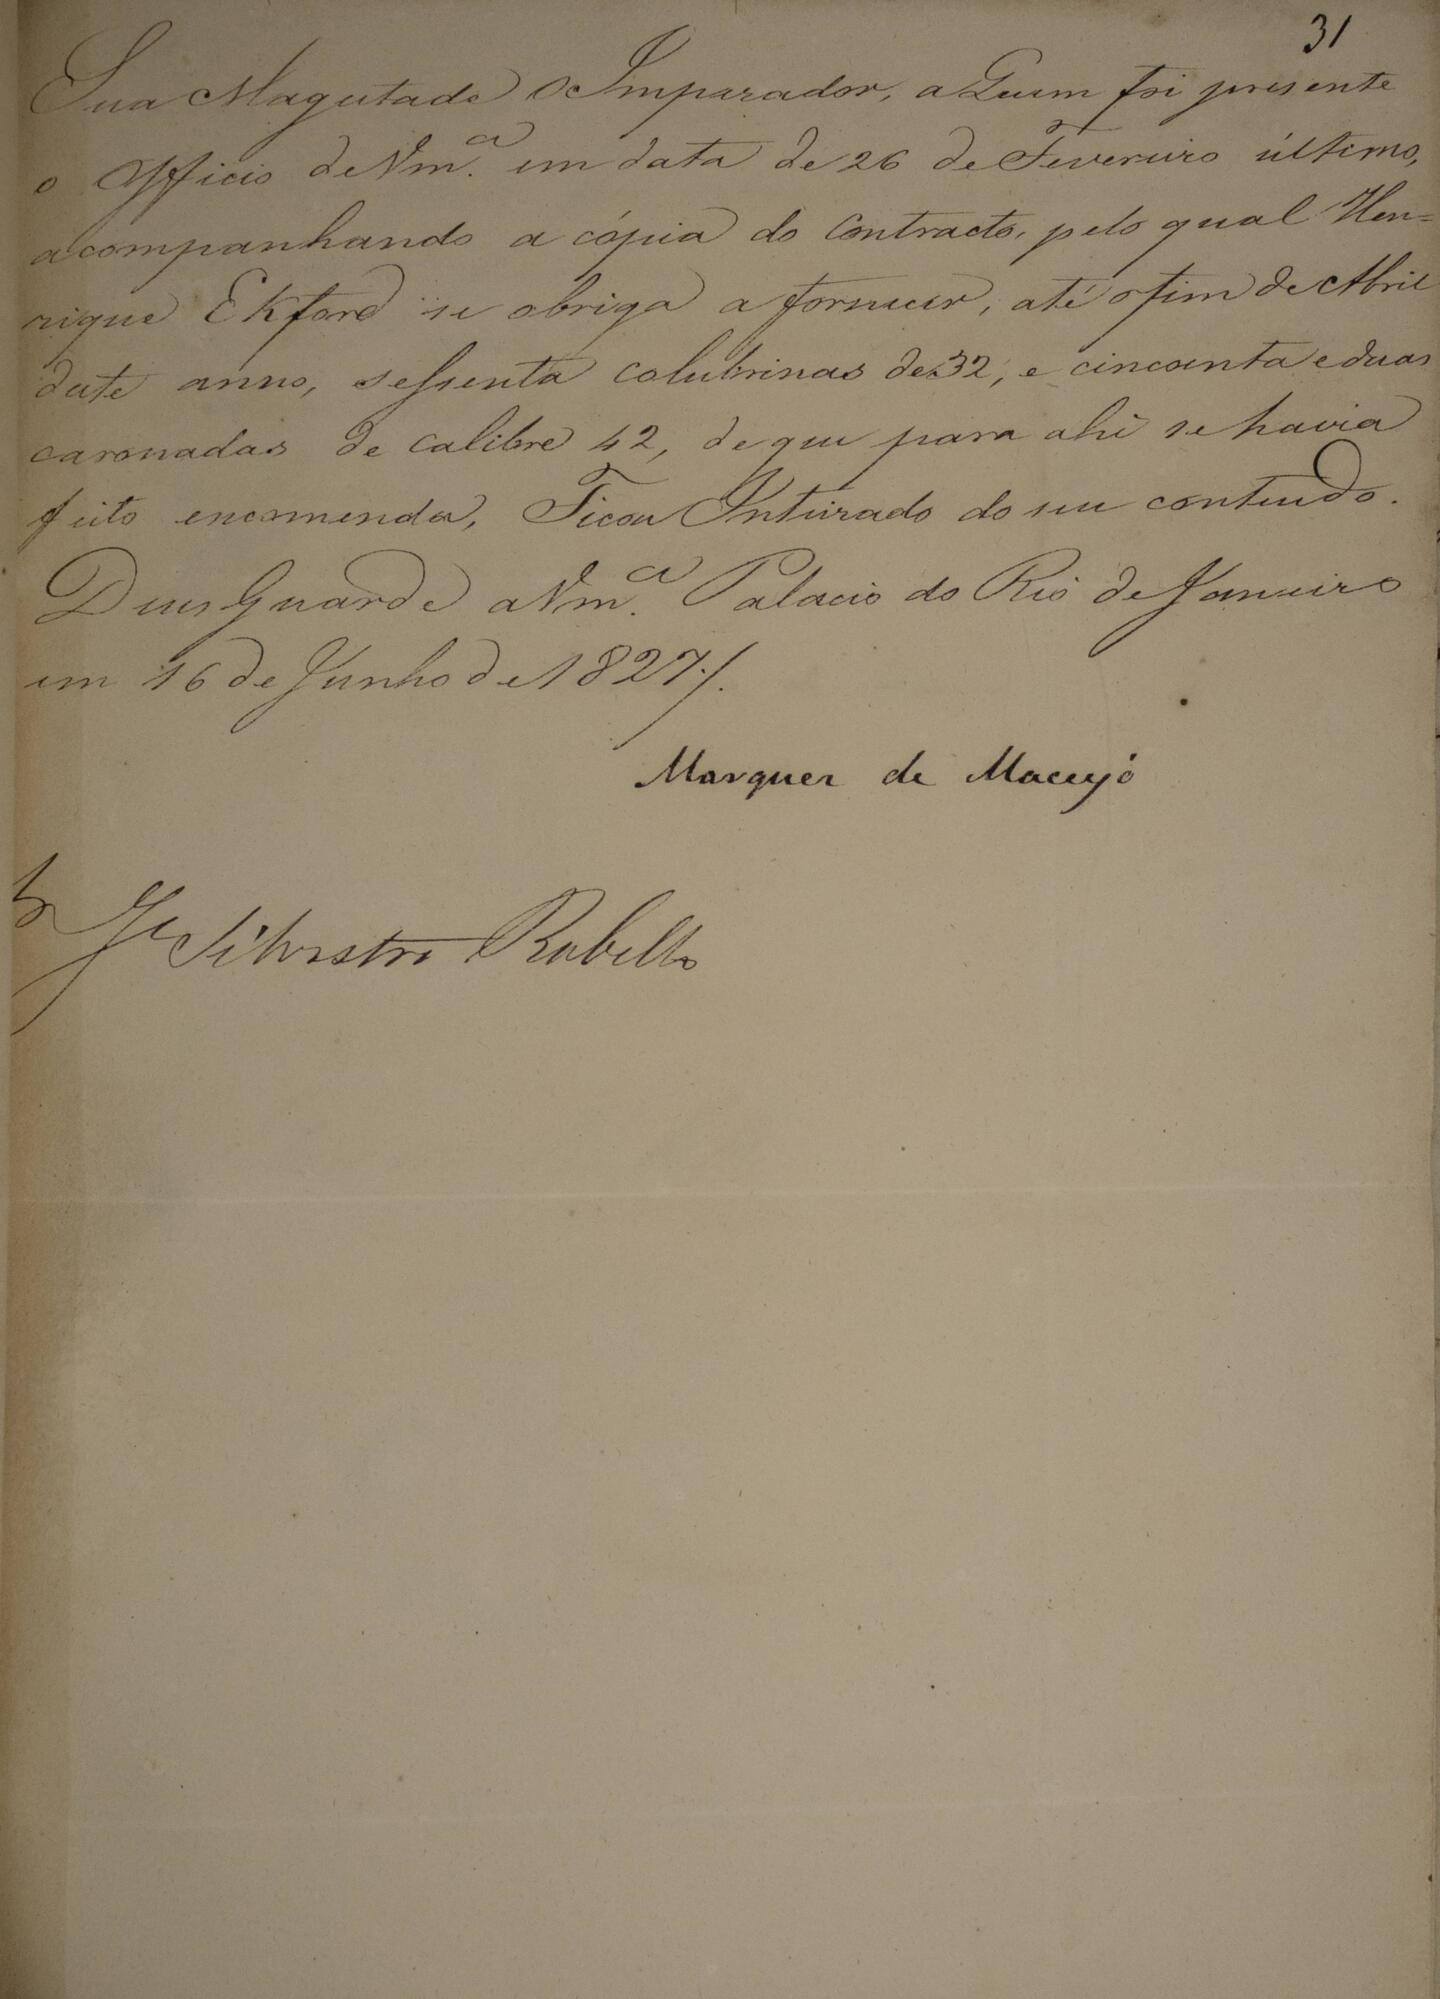 31
Sua Magestade O Imperador, a Quem foi presente
o Officio de Vm.ce em data de 26 de Fevereiro último,
acompanhando a cópia do Contracto, pelo qual Hen=
rique Ekford se obriga a fornecer, até o fim de Abril
deste anno, sessenta colubrinas de 32, e cincoenta e duas
caronadas de calibre 42, de que para ahi se havia
feito encomenda, Ficou Inteirado do seu conteudo.
Deos Guarde a Vm.ce Palacio do Rio de Janeiro
em 16 de Junho de 1827/.
Marquez de Maceyó
Silvestre Rebello